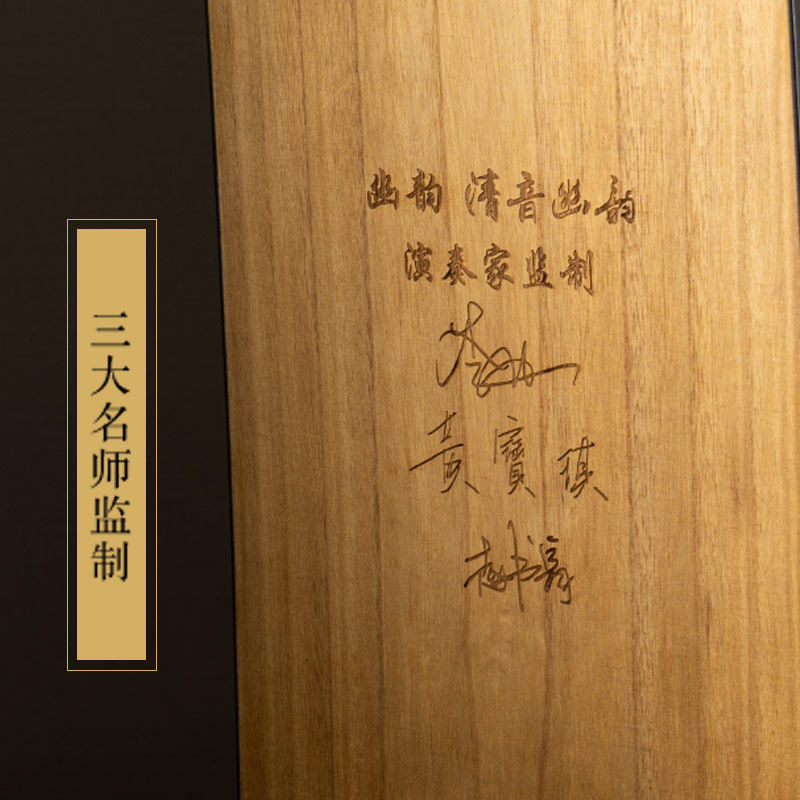 三大名师监制
幽韵 清音幽韵
演奏家监制
黄寶琪